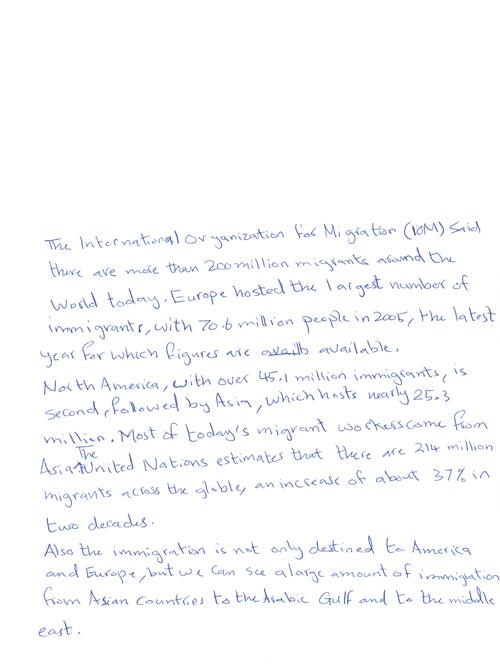 The International Organization for Migration (IOM) said
there are more than 200 million migrants around the
World today. Europe hosted the largest number of
immigrants, with 70.6 million people in 2005, the latest
year for which figures are available.
North America, with over 45.1 million immigrants, is
second, followed by Asia, which hosts nearly 25.3
million. Most of today's migrant workers come from
Asia. The United Nations estimates that there are 214 million
migrants across the globle, an increase of about 37% in
two decades.
Also the immigration is not only destined to America
and Europe, but we can see a large amount of immigration
from Asian Countries to the Arabic Gulf and to the middle
east.